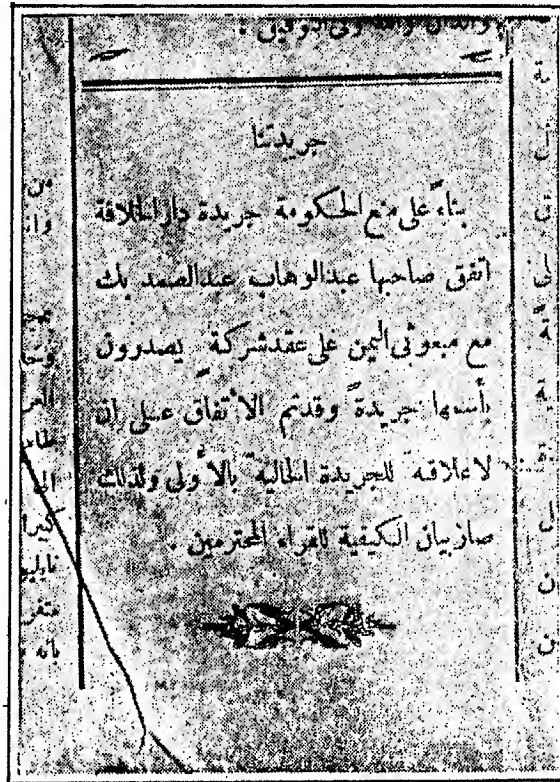 جريدتنا
بناءً على منع الحكومة جريدة دار الخلافة
اتفق صاحبها عبدالوهاب عبدالصمد بك
مع مبعوثى اليمن على عقد شركة يصدرون
بأسمها جريدةً وقد تم الأتفاق على ان
لا علاقة للجريدة الحالية بالأولى ولذلك
صار بيان الكيفية للقراء المحترمين .